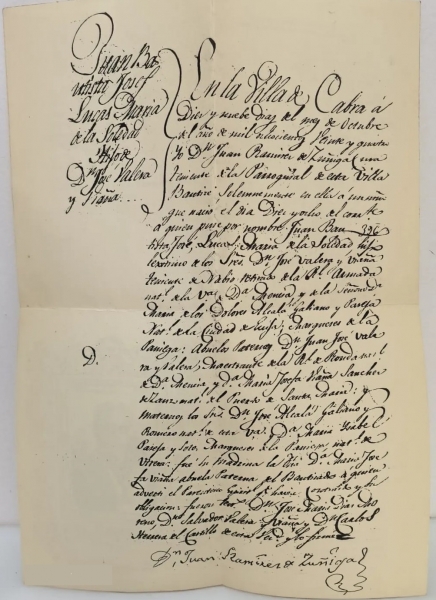 Juan Ba
utista Josef
Lucas Maria
de la Soledad
Hijo de
Dn. José Valera
y Viaña
En la Villa de Cabra á
Diez y nuebe dias del mes de Octubre
del año de mil ochocientos Veinte y quatro
Yo Dn. Juan Ramirez de Zuñiga Cura
Teniente de la Parroquial de esta Villa
Bautizé Solemnemente en ella á un niño
que nació el dia Diez y ocho del corrte.
á quien puse por nombre Juan Bau
396
tista, José, Lucas, Maria de la Soledad hijo
lexitimo de los Sres. Dn. José Valera y Viaña
teniente de Nabio retirado de la Rl. Armada
natl. de la Va. Da. Mencia y de la Señora Da.
Maria de los Dolores Alcalá Galiano y Pareja
Natl. de la Ciudad de Ecija, Marqueses de la
Paniega: Abuelos Paternos Dn. Juan José Vale
ra y Valera, Maestrante de la Rl. de Ronda natl.
de Da. Mencia y Da. Maria Josefa Viaña Sanchez
natl. del Puerto de Santa Maria: y
maternos los Sres. Dn. José Alcalá Galiano y
Romero natl. de esta Va. Da. Maria Isabel
Pareja y Soto, Marqueses de la Paniega, natl. de
fué su Madrina la Sra. Da. Maria Jose
fa Viaña abuela Paterna del Bautizado á quien
advertí el Parentesco que havia Contraido y su
obligacion: fueron tgos. Dn. José Maria Diaz Mo
reno, Dn. Salvador Valera y Viaña y Dn. Carlos
Herrera el Castillo de esta Vecd. y lo firmé
D.
Dn. Juan Ramirez de Zuñiga